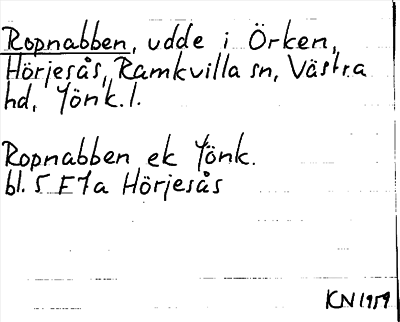 Ropnabben, udde i Örken,
Hörjesås, Ramkvilla sn, Västra
hd, Jönk. l.
Ropnabben ek Jönk.
bl. 5 E7a Hörjesås
KN 1959